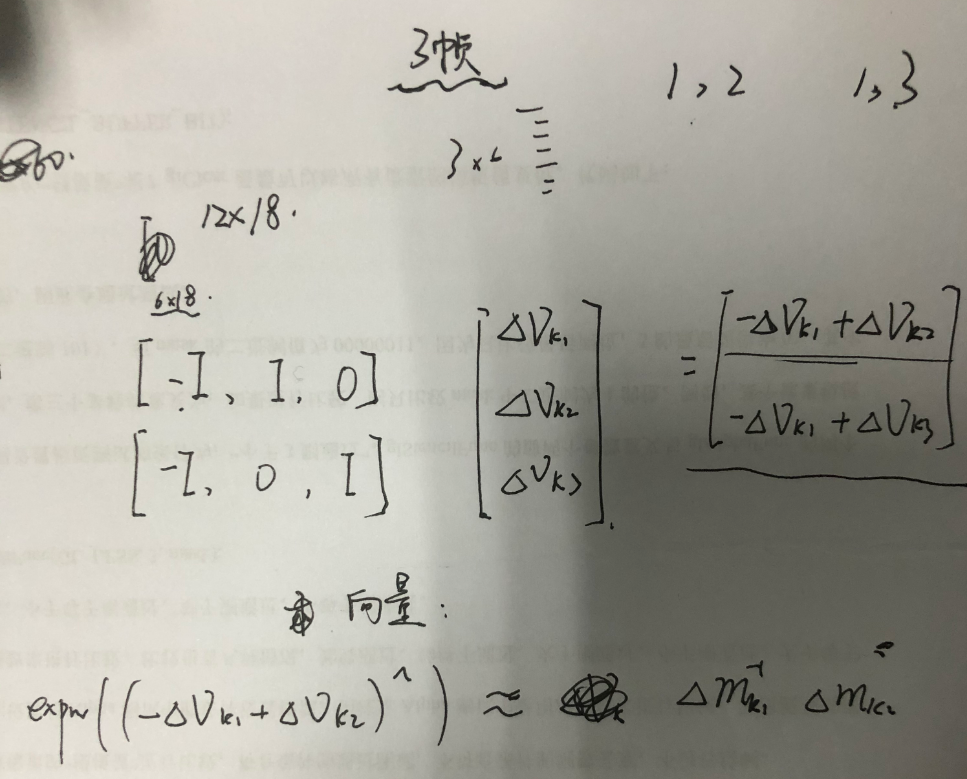 3帧 1,2 1,3
3×6
60.
12×18.
6×18.
[-I, I, 0] [ΔV_{k1} ΔV_{k2} ΔV_{k3}] = [-ΔV_{k1}+ΔV_{k2}
[-I, 0, I] -ΔV_{k1}+ΔV_{k3}]
向量:
expm((-ΔV_{k1}+ΔV_{k2})^) ≈ Δm_{k1}^{-1} Δm_{k2}